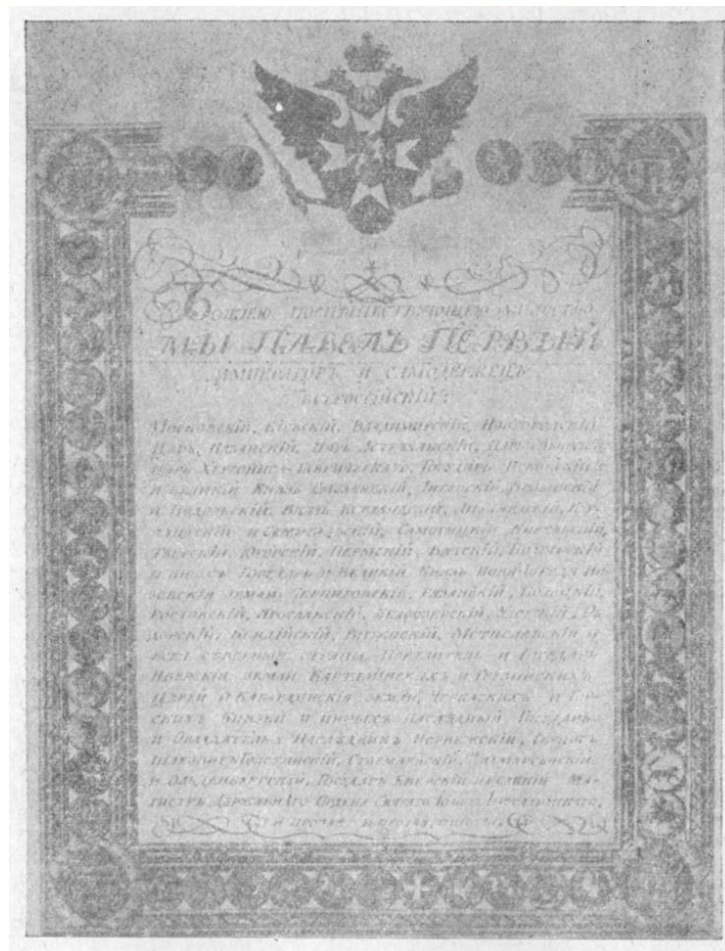 БОЖІЕЮ ПОСПѢШЕСТВУЮЩЕЮ МИЛОСТІЮ
МЫ ПАВЕЛЪ ПЕРВЫЙ
ИМПЕРАТОРЪ И САМОДЕРЖЕЦЪ
ВСЕРОССІЙСКІЙ:
Московскій, Кіевскій, Владимирскій, Новгородскій,
Царь Казанскій, Царь Астраханскій, Царь Сибирскій
Царь Херсониса-Таврическаго, Государь Псковскій и
и Великій Князь Смоленскій, Литовскій, Волынскій
и Подольскій, Князь Эстляндскій, Лифляндскій, Кур-
ляндскій и Семигальскій, Самогицкій, Корельскій,
Тверскій, Югорскій, Пермскій, Вятскій, Болгарскій
и иныхъ Государь и Великій Князь Нова-города Ни-
зовскія земли, Черниговскій, Рязанскій, Полоцкій,
Ростовскій, Ярославскій, Белоозерскій, Удорскій, Об-
дорскій, Кондійскій, Витепскій, Мстиславскій и
всея северныя страны Повелитель и Государь
Иверскія земли, Карталинскихъ и Грузинскихъ
Царей и Кабардинскія земли, Черкаскихъ и Гор-
скихъ Князей и иныхъ наследный Государь
и Обладатель, Наследникъ Норвежскій, Герцогъ
Шлезвигъ Голстинскій, Стормарнскій, Дитмарсенскій
и Ольденбургскій, Государь Еверскій и Великій Ма-
гистръ Державнаго Ордена Святаго Іоанна Іерусалимскаго,
и прочая, и прочая, и прочая.